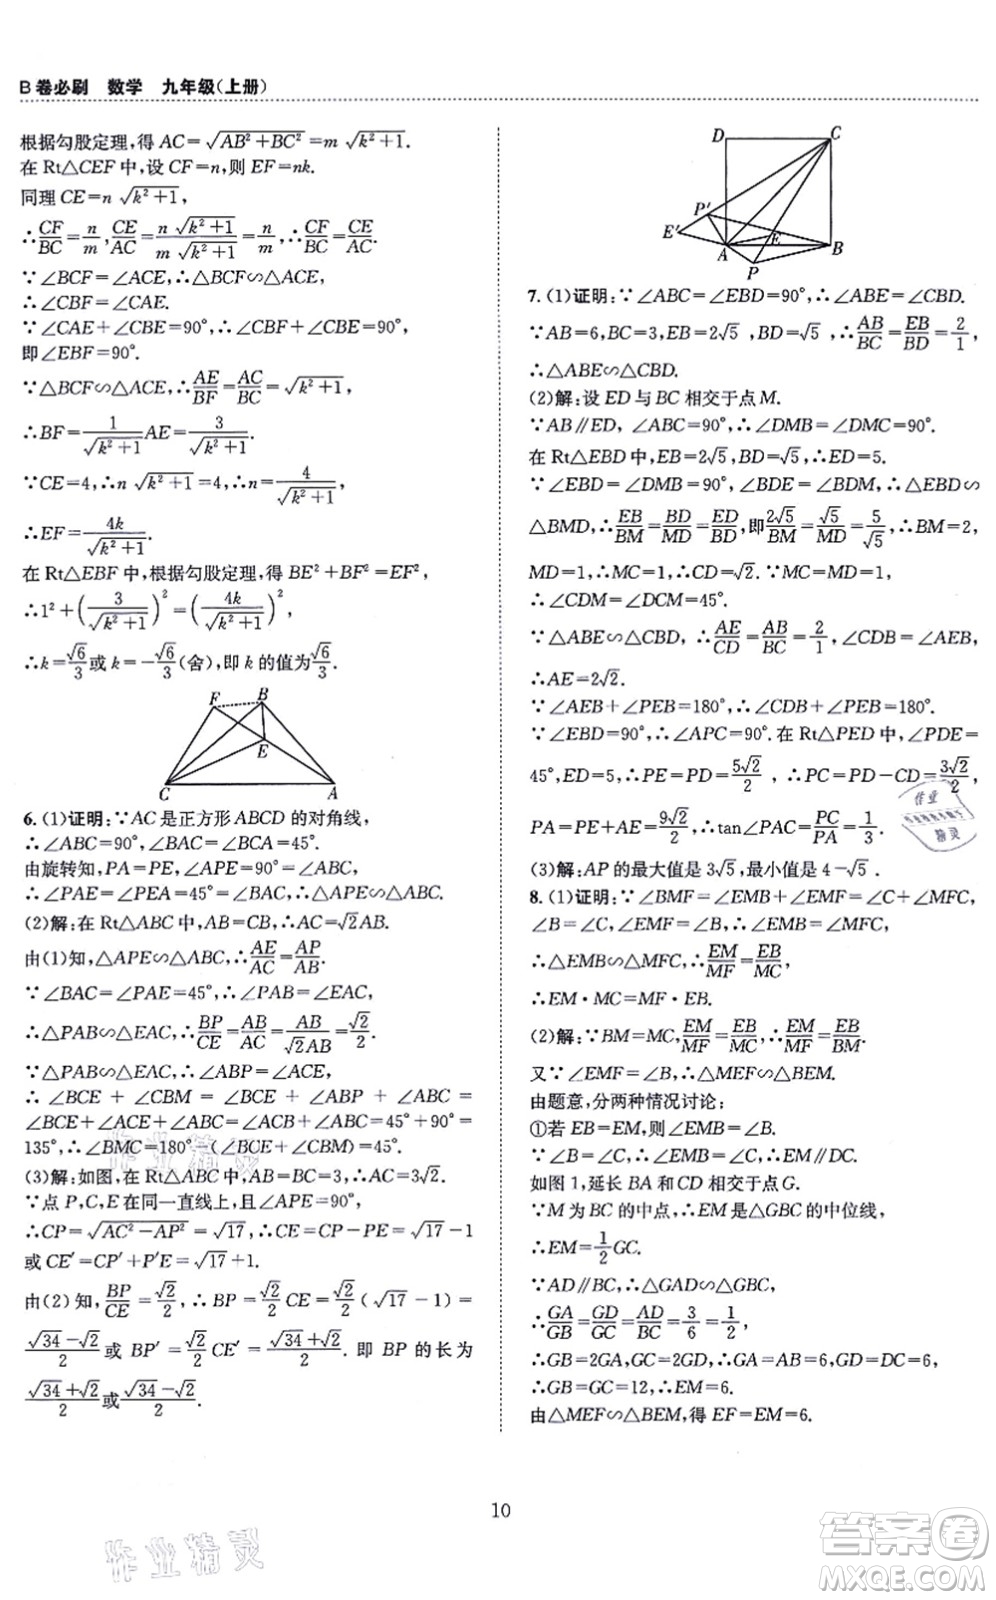 B卷必刷 数学 九年级(上册)
根据勾股定理,得 AC=√(AB²+BC²)=m√(k²+1).
在 Rt△CEF 中,设 CF=n,则 EF=nk.
同理 CE=n√(k²+1),
∴CF/BC=n/m,CE/AC=n√(k²+1)/m√(k²+1)=n/m,∴CF/BC=CE/AC.
∵∠BCF=∠ACE,∴△BCF∽△ACE.
∴∠CBF=∠CAE.
∵∠CAE+∠CBE=90°,∴∠CBF+∠CBE=90°,
即∠EBF=90°.
∵△BCF∽△ACE,∴AE/BF=AC/BC=√(k²+1).
∴BF=1/√(k²+1) AE=3/√(k²+1).
∵CE=4,∴n√(k²+1)=4,∴n=4/√(k²+1).
∴EF=4k/√(k²+1).
在 Rt△EBF 中,根据勾股定理,得 BE²+BF²=EF²,
∴1²+(3/√(k²+1))²=(4k/√(k²+1))²,
∴k=√6/3或 k=-√6/3(舍),即 k 的值为√6/3.
F B
E
C A
6.(1)证明:∵AC 是正方形 ABCD 的对角线,
∴∠ABC=90°,∠BAC=∠BCA=45°.
由旋转知,PA=PE,∠APE=90°=∠ABC,
∴∠PAE=∠PEA=45°=∠BAC,∴△APE∽△ABC.
(2)解:在 Rt△ABC 中,AB=CB,∴AC=√2AB.
由(1)知,△APE∽△ABC,∴AE/AC=AP/AB.
∵∠BAC=∠PAE=45°,∴∠PAB=∠EAC,
∴△PAB∽△EAC,∴BP/CE=AB/AC=AB/√2AB=√2/2.
∵△PAB∽△EAC,∴∠ABP=∠ACE,
∴∠BCE+∠CBM=∠BCE+∠ABP+∠ABC=
∠BCE+∠ACE+∠ABC=∠ACB+∠ABC=45°+90°=
135°,∴∠BMC=180°-(∠BCE+∠CBM)=45°.
(3)解:如图,在 Rt△ABC 中,AB=BC=3,∴AC=3√2.
∵点 P,C,E 在同一直线上,且∠APE=90°,
∴CP=√(AC²-AP²)=√17,∴CE=CP-PE=√17-1
或 CE′=CP′+P′E=√17+1.
由(2)知,BP/CE=√2/2,∴BP=√2/2 CE=√2/2(√17-1)=
(√34-√2)/2 或 BP′=√2/2 CE′=(√34+√2)/2. 即 BP 的长为
(√34+√2)/2或(√34-√2)/2.
D C
P′
E′ E
A B
P
7.(1)证明:∵∠ABC=∠EBD=90°,∴∠ABE=∠CBD.
∵AB=6,BC=3,EB=2√5,BD=√5,∴AB/BC=EB/BD=2/1,
∴△ABE∽△CBD.
(2)解:设 ED 与 BC 相交于点 M.
∵AB∥ED,∠ABC=90°,∴∠DMB=∠DMC=90°.
在 Rt△EBD 中,EB=2√5,BD=√5,∴ED=5.
∵∠EBD=∠DMB=90°,∠BDE=∠BDM,∴△EBD∽
△BMD,∴EB/BM=BD/MD=ED/BD,即2√5/BM=√5/MD=5/√5,∴BM=2,
MD=1,∴MC=1,∴CD=√2.∵MC=DM=1,
∴∠CDM=∠DCM=45°.
∵△ABE∽△CBD,∴AE/CD=AB/CB=2/1,∠CDB=∠AEB,
∴AE=2√2.
∵∠AEB+∠PEB=180°,∴∠CDB+∠PEB=180°.
∵∠EBD=90°,∴∠APC=90°.在 Rt△PED 中,∠PDE=
45°,ED=5,∴PE=PD=5√2/2,∴PC=PD-CD=3√2/2,
PA=PE+AE=9√2/2,∴tan∠PAC=PC/PA=1/3.
(3)解:AP 的最大值是 3√5,最小值是 4-√5.
8.(1)证明:∵∠BMF=∠EMB+∠EMF=∠C+∠MFC,
∠B=∠C=∠EMF,∴∠EMB=∠MFC,
∴△EMB∽△MFC,∴EM/MF=EB/MC,
∴EM·MC=MF·EB.
(2)解:∵BM=MC,EM/MF=EB/MC,∴EM/MF=EB/BM.
又∵∠EMF=∠B,∴△MEF∽△BEM.
由题意,分两种情况讨论:
①若 EB=EM,则∠EMB=∠B.
∵∠B=∠DCB,∴∠EMB=∠DCB,∴EM∥CD.
如图1,延长 BA 和 CD 相交于点 G.
∵M 为 BC 的中点,∴EM 是△GBC 的中位线,
∴EM=1/2 GC.
∵AD∥BC,∴△GAD∽△GBC,
∴GA/GB=GD/GC=AD/BC=3/6=1/2,
∴GB=2GA,GC=2GD,∴GA=AB=6,GD=DC=6,
∴GB=GC=12,∴EM=6.
由△MEF∽△BEM,得 EF=EM=6.
10
作业精灵
作业精灵
作业
精灵
答案卷
MXQE.COM